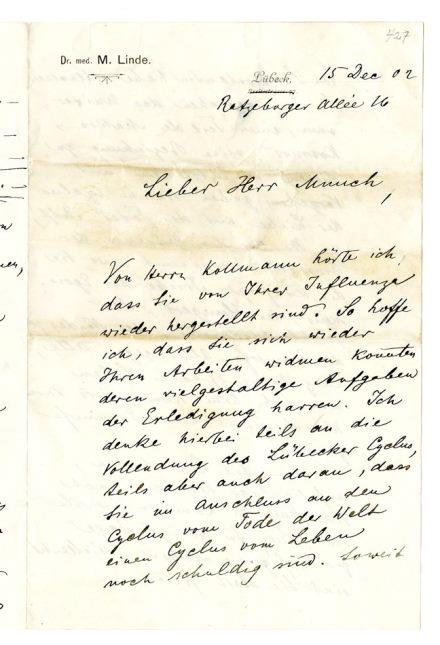 427
Dr. med. M. Linde.
Lübeck, 15 Dec 02
Ratzeburger Allée 16
Lieber Herr Munch,
Von Herrn Kollmann hörte ich,
dass Sie von Ihrer Influenza
wieder hergestellt sind. So hoffe
ich, dass Sie sich wieder
Ihren Arbeiten widmen konnten
deren vielgestaltige Aufgaben
der Erledigung harren. Ich
denke hierbei teils an die
Vollendung des Lübecker Cyclus,
teils aber auch daran, dass
Sie im Anschluss an den
Cyclus vom Tode der Welt
einen Cyclus vom Leben
noch schuldig sind. Soweit